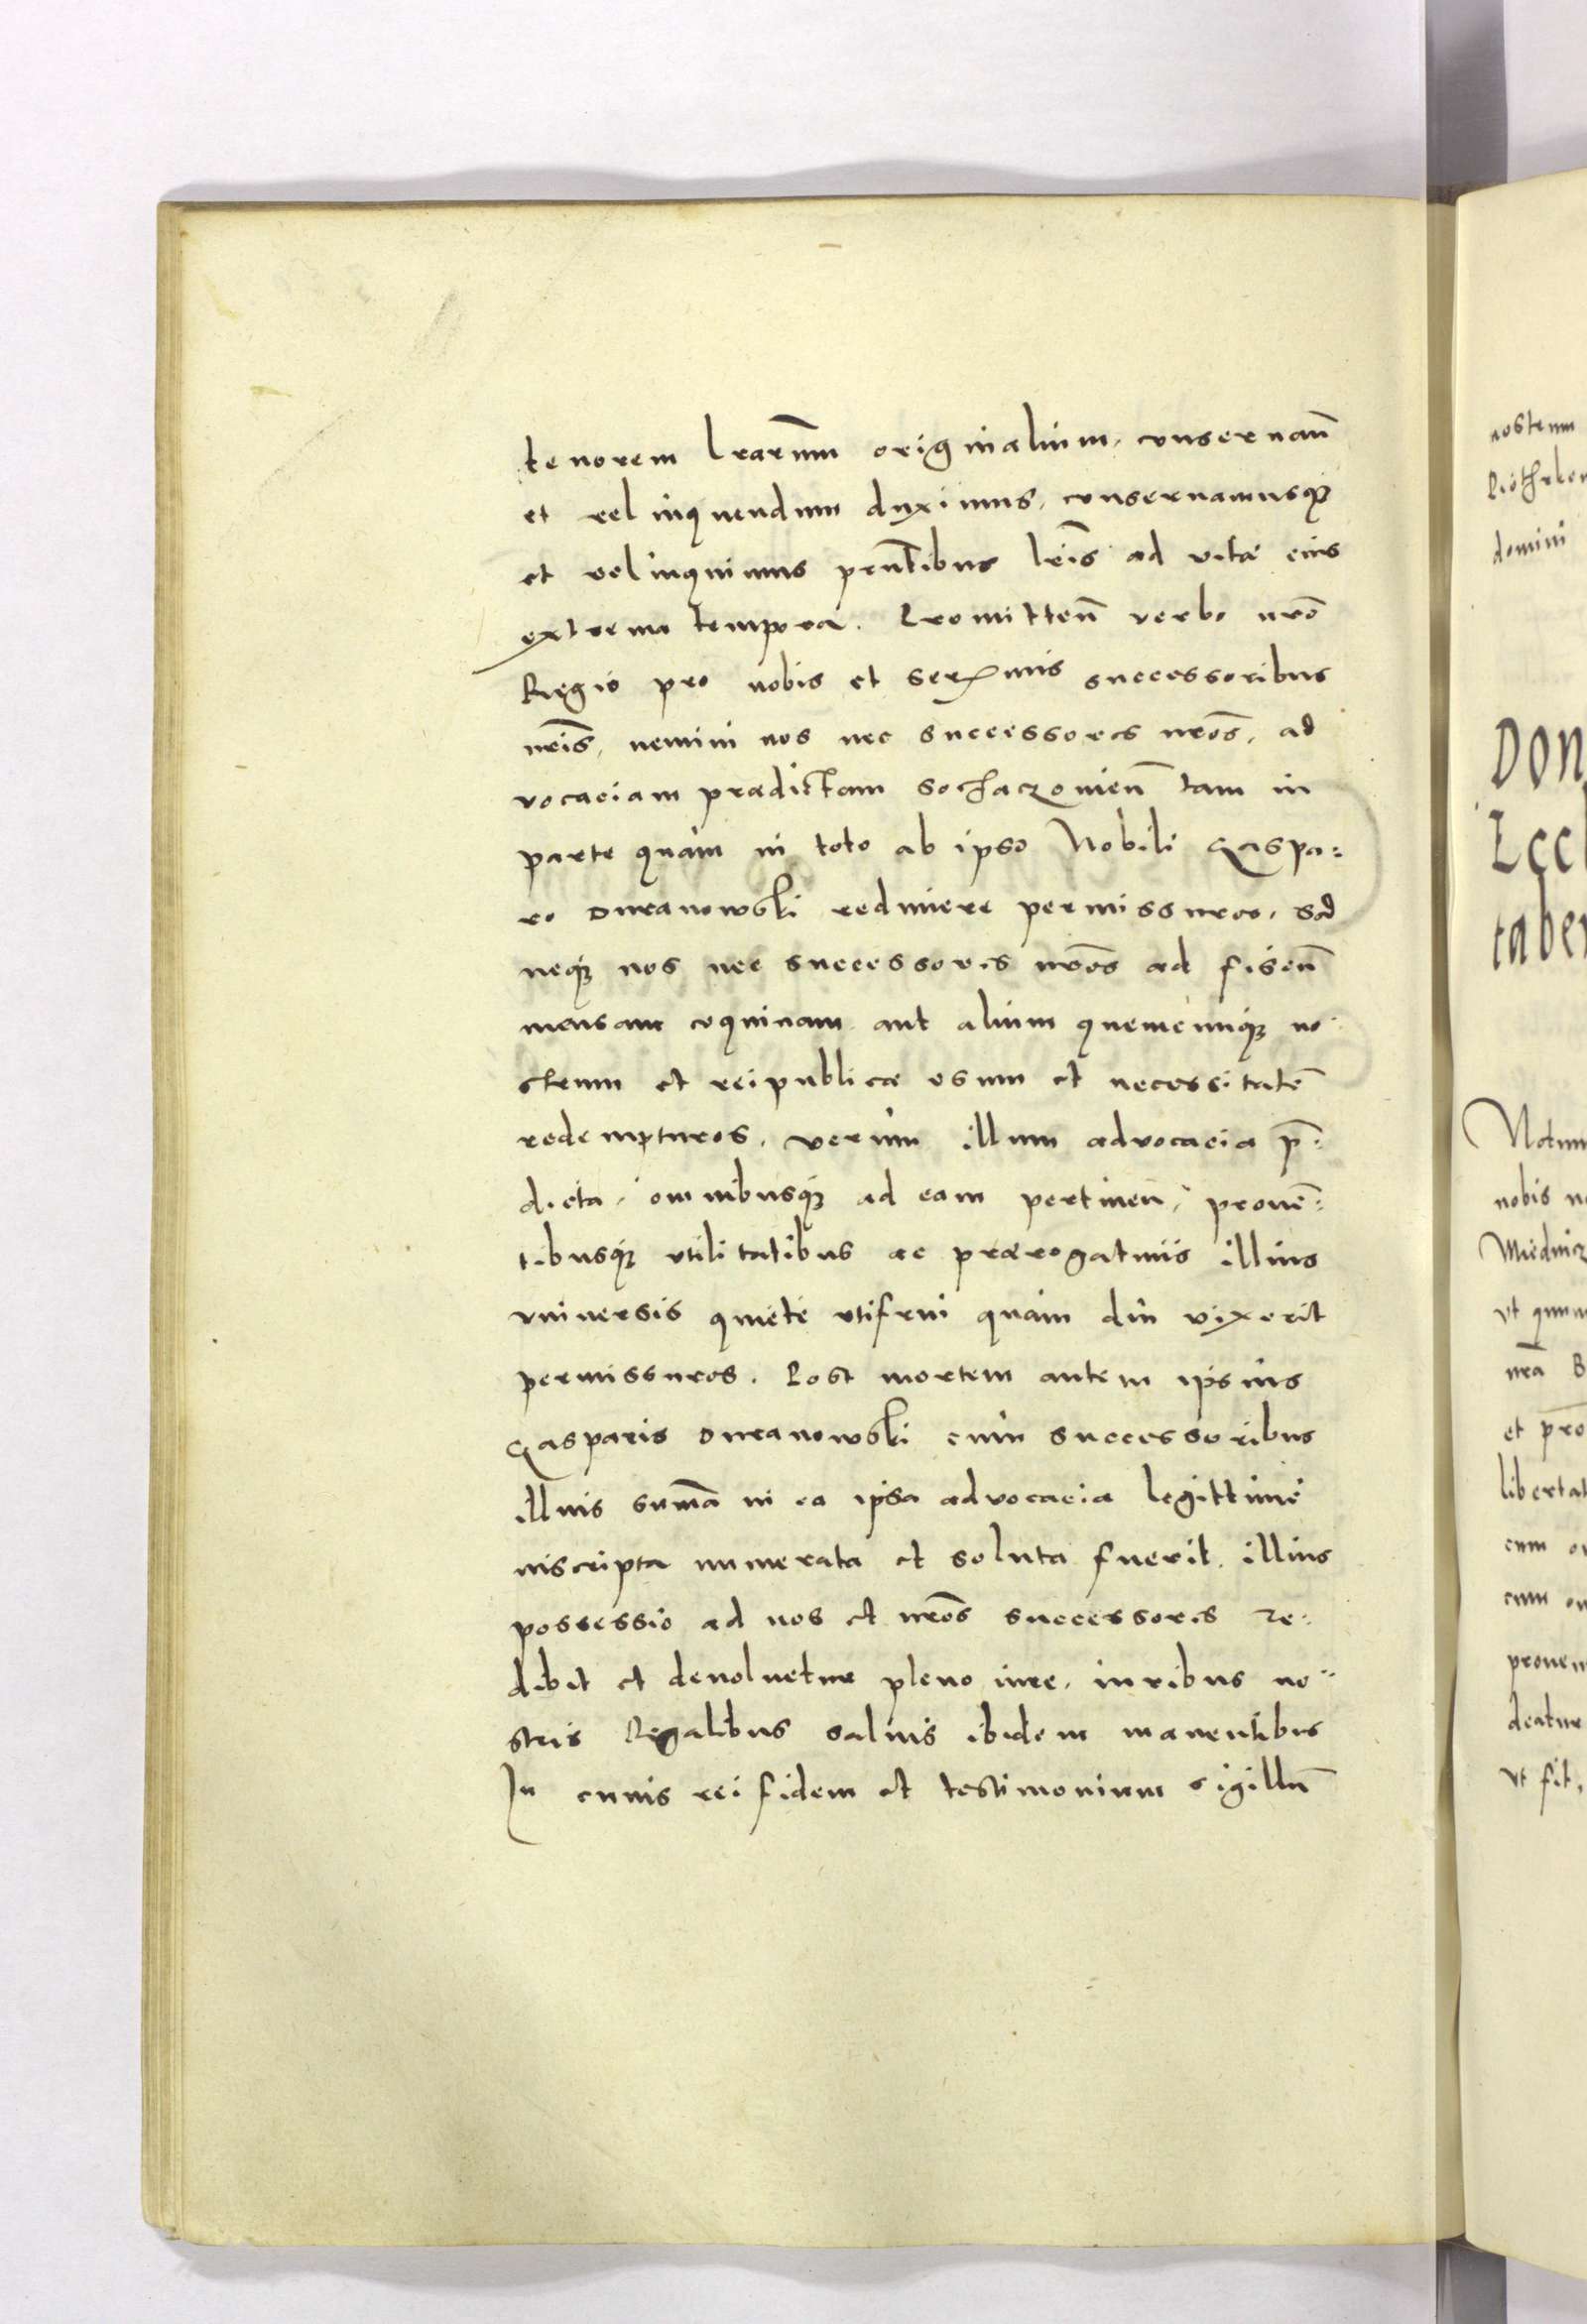 tenorem lrarum̄ originalium, conseruan̄
et relinquendum duximus, conseruamusq₃
et relinquimus pn̄tibus lrīs ad vitæ eius
extrema tempora. Promitten̄ verbo nrō
Regio pro nobis et Serx̄mis successoribus
nrīs, nemini nos nec successores nrōs, ad
vocaciam prædictam Sochaczouien̄ tam in
parte quàm in toto ab ipso Nobili Gaspa:
ro Duranowski redimere permissuros, sed
neq₃ nos nec successores nrōs ad fiscū
mensam coquinam aut alium quemcunq₃ no
strum et reipublicæ vsum et necessitatē
redempturos, verùm illum aduocacia p̄:
dicta, omnibusq₃ ad eam pertinen̄, prouē:
tibusq₃ vtilitatibus ac prærogatiuis illius
vniuersis quietè vtifrui quàm diu vixerit
permissuros. Post mortem autem ipsius
Gasparis Duranowski cùm successoribus
illius sum̄a in ea ipsa aduocacia legittimè
inscripta numerata et soluta fuerit, illius
possessio ad nos et nrōs successores re:
dibit et deuoluetur pleno iure, iuribus no:
stris Regalibus saluis ibidem manentibus
In cuius rei fidem et testimonium sigillū
nostrum
domini
Don
Eccl
taber
Notum
nobis n
Miednicz
vt quum
nrā B
et pro
libertat
cum o
cum om
prouen
deatur
Vt fit,